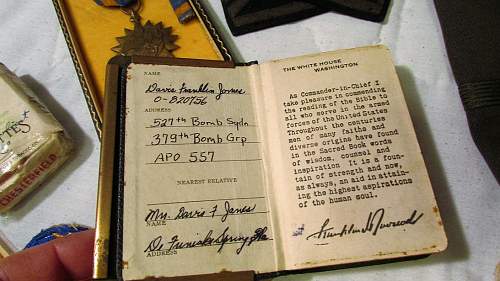 NAME
Davis Franklin Jones
O-820756
ADDRESS
527th Bomb Sqdn
379th Bomb Grp
APO 557
NEAREST RELATIVE
Mrs. Davis F Jones
NAME
De Funiak Springs Fla
ADDRESS
THE WHITE HOUSE
WASHINGTON
As Commander-in-Chief I
take pleasure in commending
the reading of the Bible to
all who serve in the armed
forces of the United States
Throughout the centuries
men of many faiths and
diverse origins have found
in the Sacred Book words
of wisdom, counsel and
inspiration. It is a foun-
tain of strength and now,
as always, an aid in attain-
ing the highest aspirations
of the human soul.
Franklin D Roosevelt
CHESTERFIELD